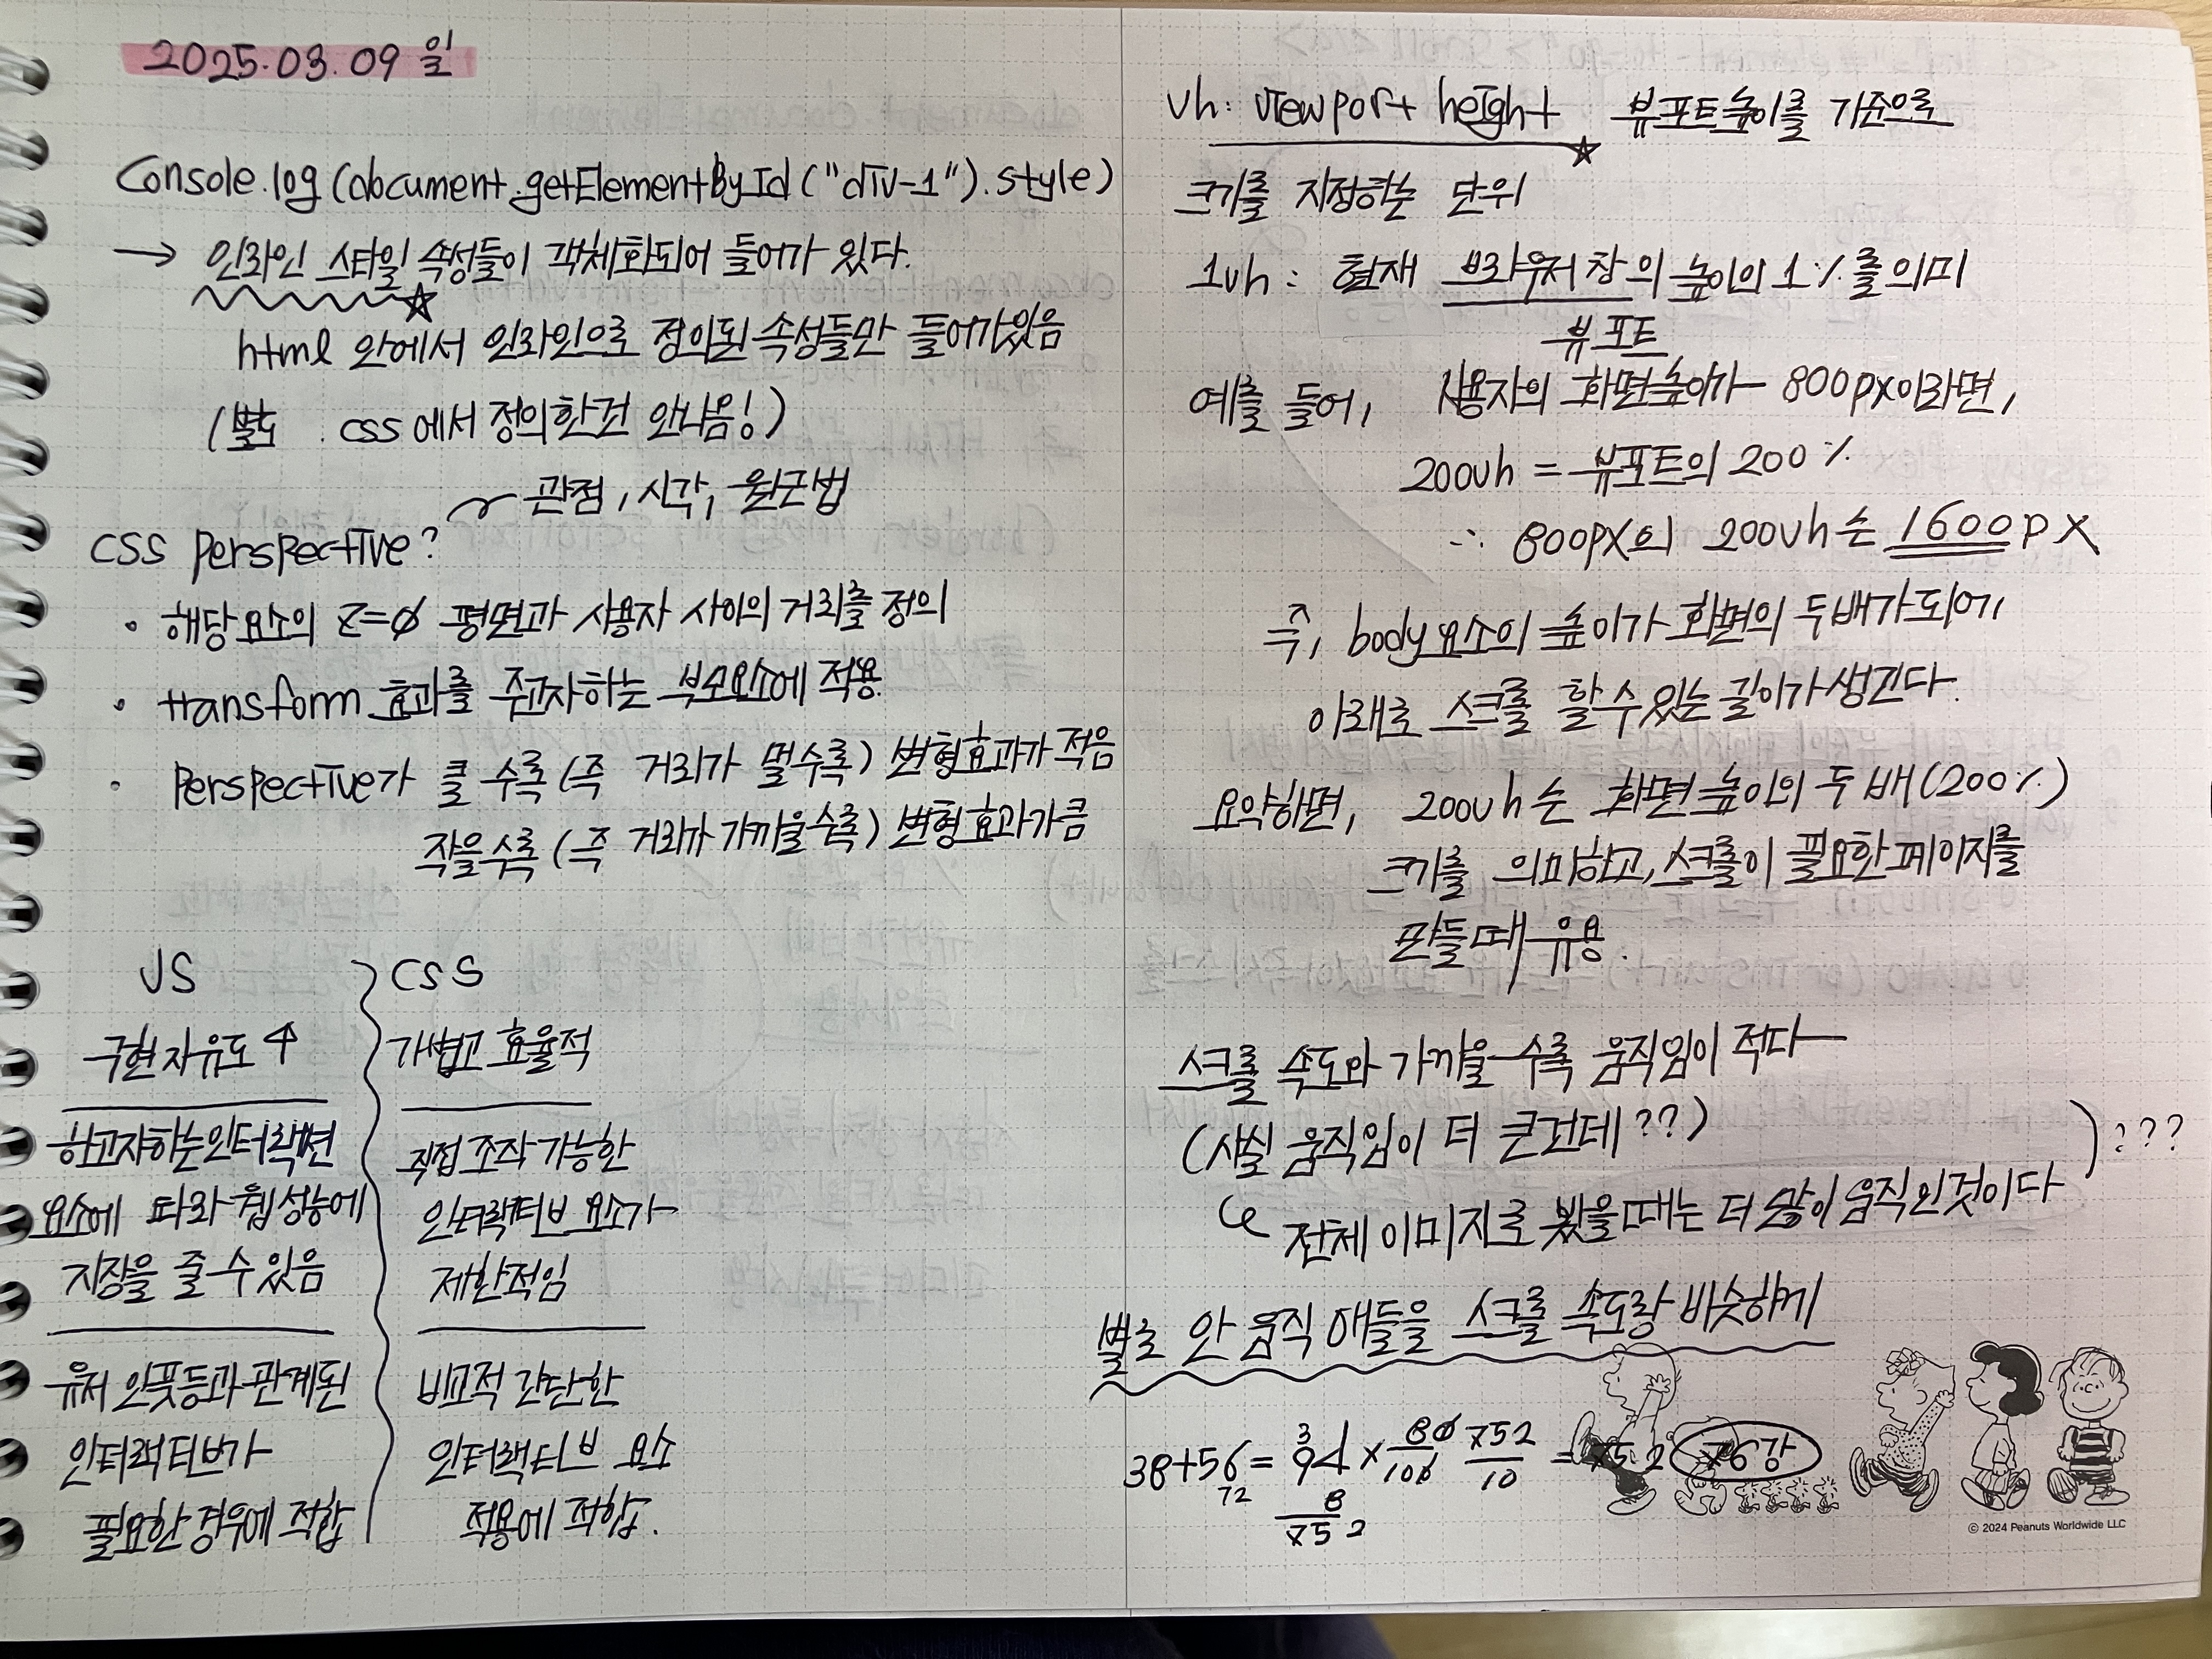 2025.03.09 일
Console.log(document.getElementById("div-1").style)
→ 인라인 스타일 속성들이 객체화되어 들어가 있다.
html 안에서 인라인으로 정의된 속성들만 들어가있음
(별도 css에서 정의한건 안나옴!)
관점, 시각, 원근법
CSS perspective?
· 해당요소의 z=0 평면과 사용자 사이의 거리를 정의
· transform 효과를 주고자하는 부모요소에 적용.
· perspective가 클 수록 (즉 거리가 멀수록) 변형효과가 적음
작을수록 (즉 거리가 가까울수록) 변형효과가 큼
JS
구현자유도 ↑
하고자하는 인터랙션
요소에 따라 웹 성능에
지장을 줄 수 있음
유저 인풋등과 관계된
인터랙티브가
필요한 경우에 적합
CSS
가볍고 효율적
직접 조작 가능한
인터랙티브 요소가
제한적임
비교적 간단한
인터랙티브 요소
적용에 적합.
vh: viewport height 뷰포트높이를 기준으로
크기를 지정하는 단위
1vh: 현재 브라우저 창의 높이의 1%를 의미
뷰포트
예를 들어, 사용자의 화면높이가 800px이라면,
200vh = 뷰포트의 200%
∴ 800px의 200vh는 1600px
즉, body요소의 높이가 화면의 두배가 되어,
아래로 스크롤 할 수 있는 길이가 생긴다.
요약하면, 200vh는 화면 높이의 두 배(200%)
크기를 의미하고, 스크롤이 필요한 페이지를
만들때 유용.
스크롤 속도와 가까울 수록 움직임이 적다
(사실 움직임이 더 큰건데??)
전체 이미지로 봤을때는 더 많이 움직인것이다
???
별로 안 움직 애들을 스크롤 속도랑 비슷하게
38+56 = 94 × 80/100 752/10 = 75.2 76강
72 3 8
752
© 2024 Peanuts Worldwide LLC